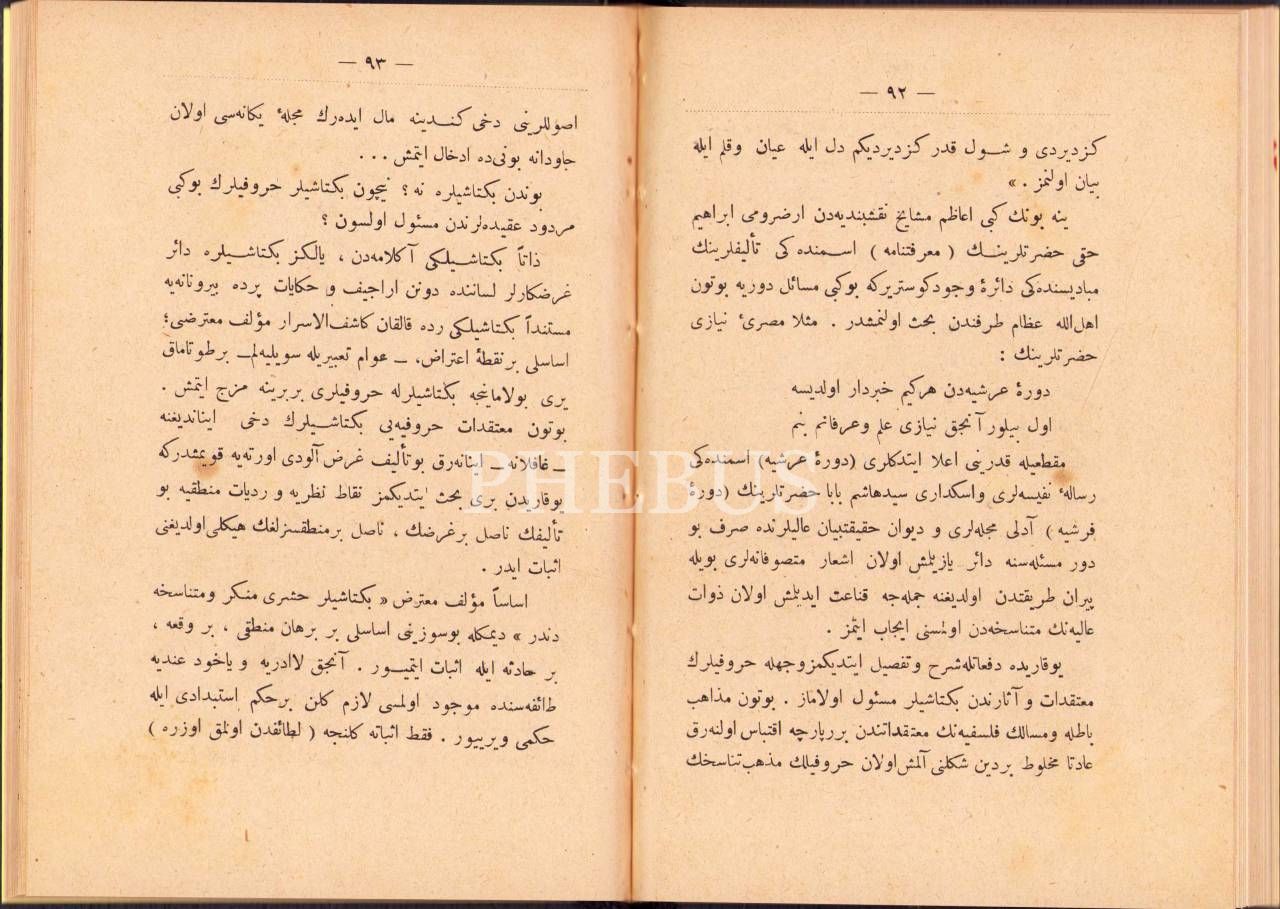 — ٩٢ —
كزدیردی و شول قدر كزدیردیكم دل ایله عیان وقلم ایله
بیان اولنمز . »
ینه بونك كبی اعاظم مشایخ نقشبندیه‌دن ارضرومی ابراهیم
حقی حضرتلرینك ( معرفتنامه ) اسمنده‌كی تألیفلرینك
مبادیسنده‌كی دائرهٔ وجودكوستریركه بوكبی مسائل دوریه بوتون
اهل‌الله عظام طرفندن بحث اولنمشدر . مثلا مصرئ نیازی
حضرتلرینك :
دورهٔ عرشیه‌دن هركیم خبردار اولدیسه
اول بیلور آنجق نیازی علم وعرفانم بنم
مقطعیله قدرینی اعلا ایتدكلری (دورهٔ عرشیه) اسمنده‌كی
رسالهٔ نفیسه‌لری واسكداری سیدهاشم بابا حضرتلرینك (دورهٔ
فرشیه ) آدلی مجله‌لری و دیوان حقیقتبیان عالیلرنده صرف بو
دور مسئله‌سنه دائر یازیلمش اولان اشعار متصوفانه‌لری بویله
پیران طریقتدن اولدیغنه جمله‌جه قناعت ایدیلمش اولان ذوات
عالیه‌نك متناسخه‌دن اولمسنی ایجاب ایتمز .
یوقاریده دفعاتله‌شرح وتفصیل ایتدیكمزوجهله حروفیلرك
معتقدات و آثارندن بكتاشیلر مسئول اولاماز . بوتون مذاهب
باطله ومسالك فلسفیه‌نك معتقداتندن بررپارچه اقتباس اولنه‌رق
عادتا مخلوط بردین شكلنی آلمش‌اولان حروفیلك مذهب‌تناسخك
— ٩٣ —
اصوللرینی دخی كندینه مال ایده‌رك مجلهٔ یكانه‌سی اولان
جاودانه بونی‌ده ادخال ایتمش ...
بوندن بكتاشیلره نه ؟ نیچون بكتاشیلر حروفیلرك بوكبی
مردود عقیده‌لرندن مسئول اولسون ؟
ذاتاً بكتاشیلكی آكلامه‌دن ، یالكز بكتاشیلره دائر
غرضكارلر لساننده دونن اراجیف و حكایات پرده بیرونانه‌یه
مستنداً بكتاشیلكی رده قالقان كاشف‌الاسرار مؤلف معترضی؛
اساسلی برنقطهٔ اعتراض، ــ عوام تعبیریله سویلیه‌لم‌ــ برطوتاماق
یری بولاماینجه بكتاشیلرله حروفیلری بربرینه مزج ایتمش .
بوتون معتقدات حروفیه‌یی بكتاشیلرك دخی ایناندیغنه
ــ غافلانه ــ اینانه‌رق بوتألیف غرض آلودی اورته‌یه قویمشدركه
یوقاریدن بری بحث ایتدیكمز نقاط نظریه و ردیات منطقیه بو
تألیفك ناصل برغرضك ، ناصل برمنطقسزلغك هیكلی‌اولدیغنی
اثبات ایدر .
اساساً مؤلف معترض « بكتاشیلر حشری منكر ومتناسخه
دندر » دیمكله بوسوزینی اساسلی بر برهان منطقی ، بر وقعه ،
بر حادثه ایله اثبات ایتمیور . آنجق لاادریه و یاخود عندیه
طائفه‌سنده موجود اولمسی لازم كلن برحكم استبدادی ایله
حكمی ویرییور . فقط اثباته كلنجه ( لطائفدن اولمق اوزره )
PHEBUS